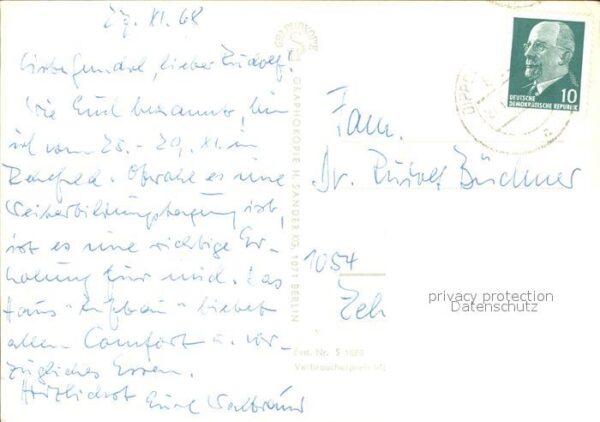 27. XI. 68
Liebe Gundel, lieber Rudolf!
Wie Euch bekannt, bin
ich vom 25. - 29. XI. in
Obwohl es eine
Weiterbildungstagung ist,
ist es eine richtige Er-
holung für mich. Das
Haus "Aufbau" bietet
allen Comfort u. vor-
zügliches Essen.
Herzlichst Eure
GRAPHOKOPIE
GRAPHOKOPIE H. SANDER KG, 1071 BERLIN
DEUTSCHE
DEMOKRATISCHE REPUBLIK 10
DIPPO
Fam.
Dr. Rudolf Büchner
1054
privacy protection
Datenschutz
Best. Nr. S
Verbraucherpreis